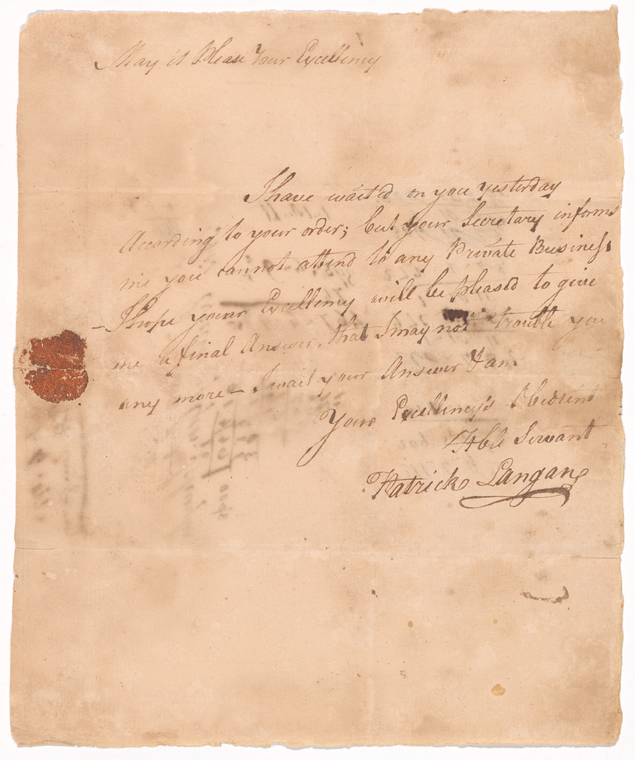 May it Please Your Excellency
I have wait'd on you yesterday
According to your order; but your Secretary informs
me you cannot attend to any Private Business
- I hope your Excellency will be pleas'd to give
me a final Answer, that I may not trouble you
any more - I wait your Answer I am
Your Excellency's Obedient
Hbl Servant
Patrick Langan